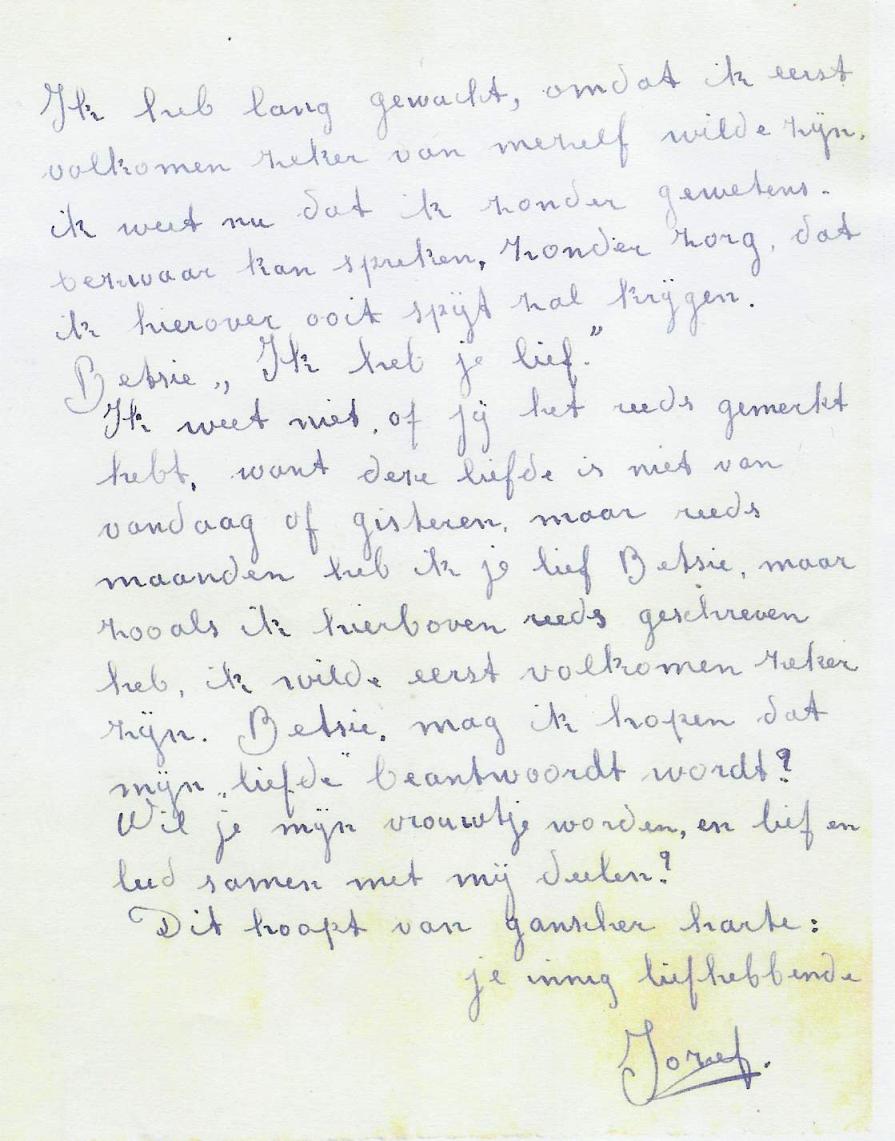 Ik heb lang gewacht, omdat ik eerst
volkomen zeker van mezelf wilde zijn.
ik weet nu dat ik zonder gewetens-
bezwaar kan spreken, zonder zorg, dat
ik hierover ooit spijt zal krijgen.
Betsie „Ik heb je lief.”
Ik weet niet, of jij het reeds gemerkt
hebt, want deze liefde is niet van
vandaag of gisteren, maar reeds
maanden heb ik je lief Betsie, maar
zooals ik hierboven reeds geschreven
heb, ik wilde eerst volkomen zeker
zijn. Betsie, mag ik hopen dat
mijn „liefde” beantwoordt wordt?
Wil je mijn vrouwtje worden, en lief en
leed samen met mij deelen?
Dit hoopt van ganscher harte:
je innig liefhebbende
Jozef.